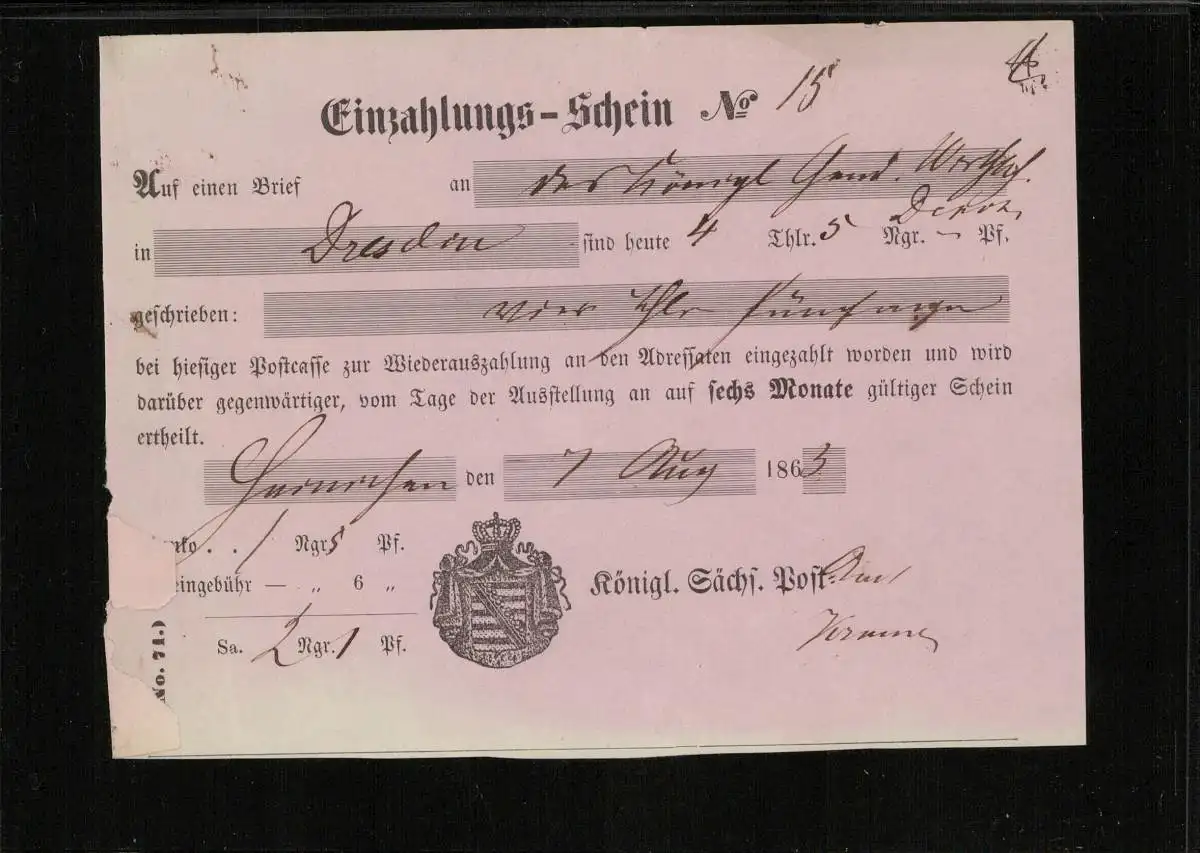 Einzahlungs-Schein No 15
Auf einen Brief an das Königl Gend. Wirthsch.
Depot
in Dresden sind heute 4 Thlr. 5 Ngr. – Pf.
geschrieben: vier Thlr fünf ngr
bei hiesiger Postcasse zur Wiederauszahlung an den Adressaten eingezahlt worden und wird
darüber gegenwärtiger, vom Tage der Ausstellung an auf sechs Monate gültiger Schein
ertheilt.
Hainichen den 7 Aug 1863
nko . . 1 Ngr. 5 Pf.
eingebühr — „ 6 „
Königl. Sächs. Post-Amt
Sa. 2 Ngr. 1 Pf.
No. 71.)